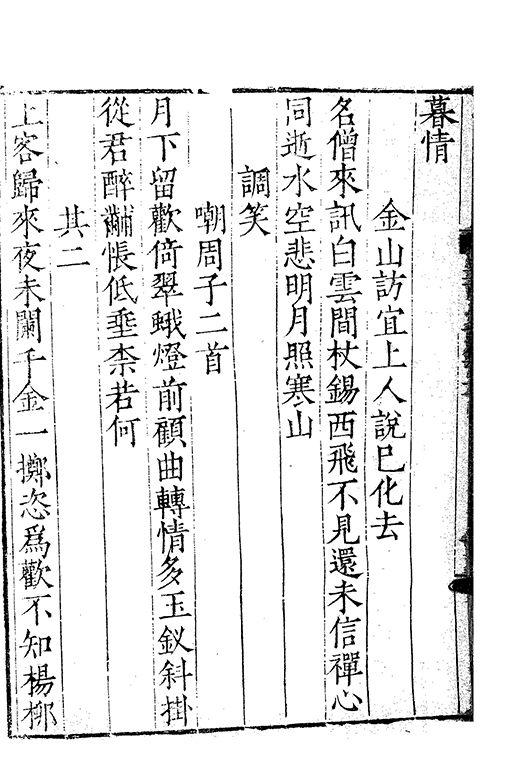 暮情
金山訪宜上人說已化去
名僧來訊白雲間杖錫西飛不見還未信禪心
同逝水空悲明月照寒山
調笑
嘲周子二首
月下留歡倚翠蛾燈前顧曲轉情多玉釵斜掛
從君醉黼悵低垂柰若何
其二
上客歸來夜未闌千金一擲恣爲歡不知楊柳